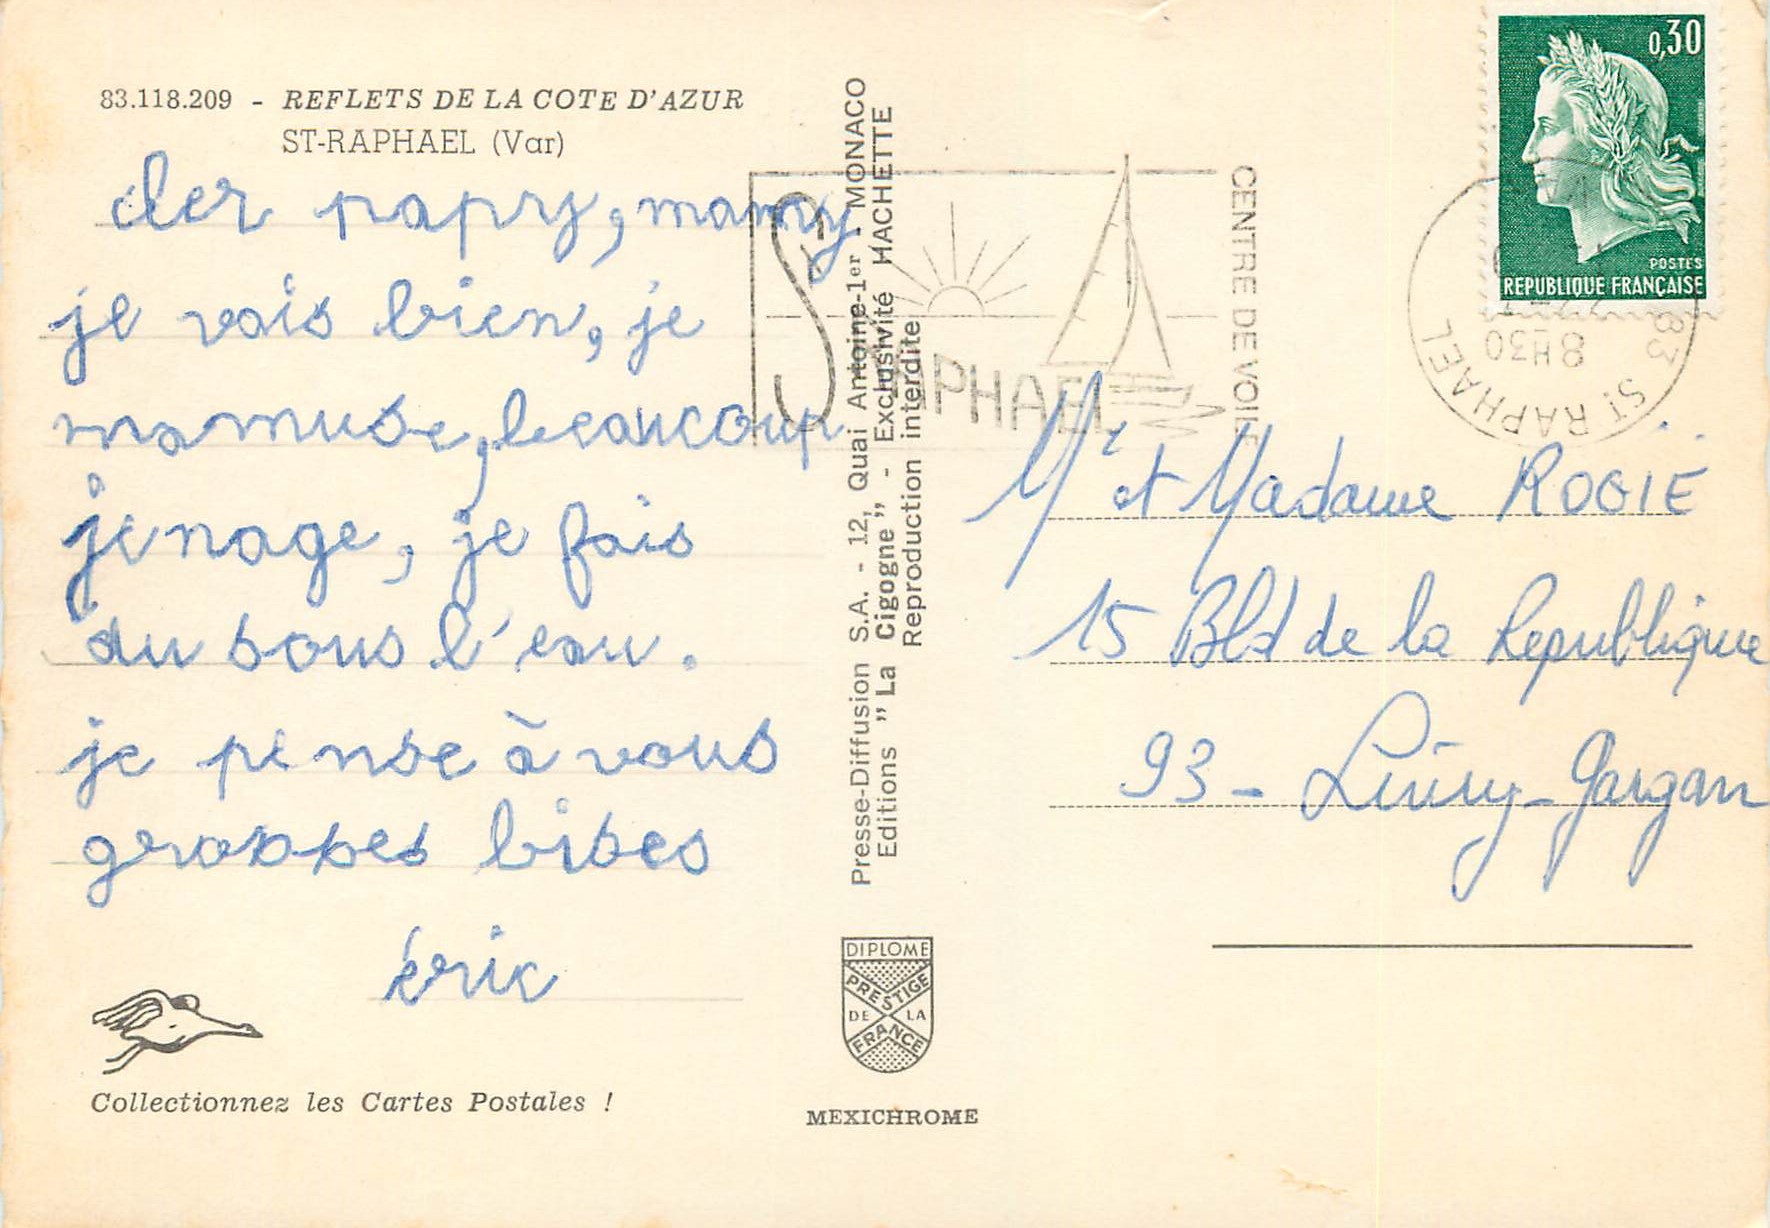 83.118.209 - REFLETS DE LA COTE D'AZUR
ST-RAPHAEL (Var)
cler papy, mamy
je vais bien, je
mamuse, beaucoup
je nage, je fais
du sous l'eau.
je pense à vous
grosses bises
éric
Collectionnez les Cartes Postales !
Presse-Diffusion S.A. - 12, Quai Antoine-1er - MONACO
Editions " La Cigogne " - Exclusivité HACHETTE
Reproduction interdite
DIPLOME
PRESTIGE
DE LA
FRANCE
MEXICHROME
ST RAPHAEL
CENTRE DE VOILE
0,30
POSTES
REPUBLIQUE FRANÇAISE
83 ST RAPHAEL
8H30
Mr et Madame ROGIË
15 Bld de la Republique
93 - Livry-Gargan